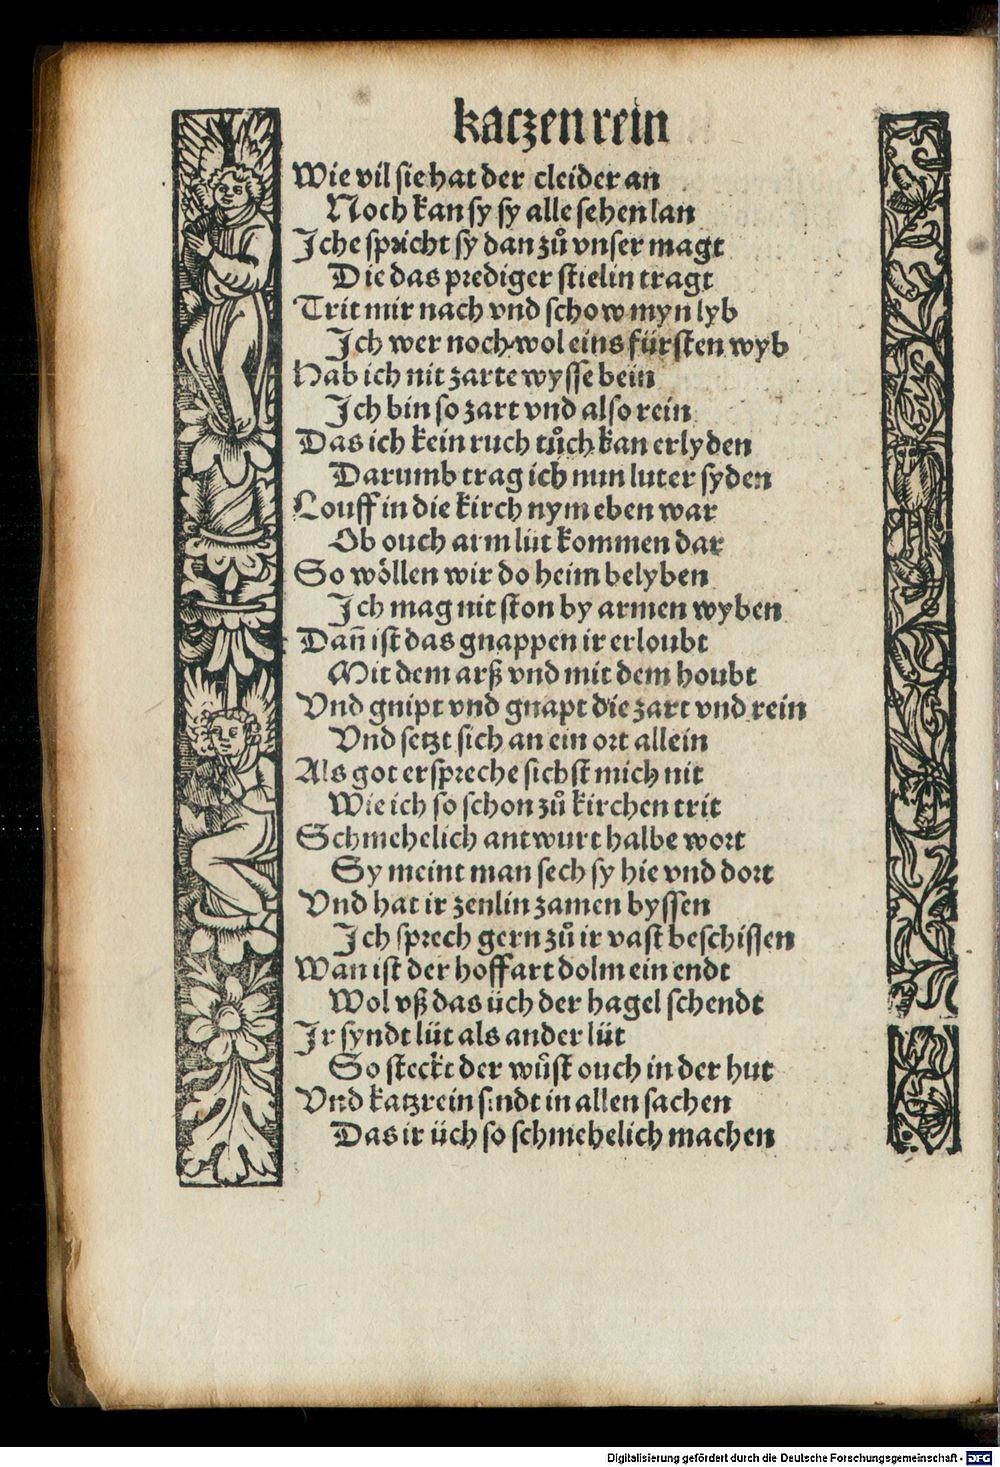 kaczen rein
Wie vil sie hat der cleider an
Noch kan sy sy alle sehen lan
Iche spricht sy dan zů vnser magt
Die das prediger stielin tragt
Trit mir nach vnd schow myn lyb
Ich wer noch wol eins fürsten wyb
Hab ich nit zarte wysse bein
Ich bin so zart vnd also rein
Das ich kein ruch tůch kan erlyden
Darumb trag ich nun luter syden
Louff in die kirch nym eben war
Ob ouch arm lüt kommen dar
So wöllen wir do heim belyben
Ich mag nit ston by armen wyben
Dañ ist das gnappen ir erloubt
Mit dem arß vnd mit dem houbt
Vnd gnipt vnd gnapt die zart vnd rein
Vnd setzt sich an ein ort allein
Als got er spreche sichst mich nit
Wie ich so schon zů kirchen trit
Schmehelich antwurt halbe wort
Sy meint man sech sy hie vnd dort
Vnd hat ir zenlin zamen byssen
Ich sprech gern zů ir vast beschissen
Wan ist der hoffart dolm ein endt
Wol vß das üch der hagel schendt
Ir syndt lüt als ander lüt
So steckt der wůst ouch in der hut
Vnd katzrein sindt in allen sachen
Das ir üch so schmehelich machen
Digitalisierung gefördert durch die Deutsche Forschungsgemeinschaft - DFG